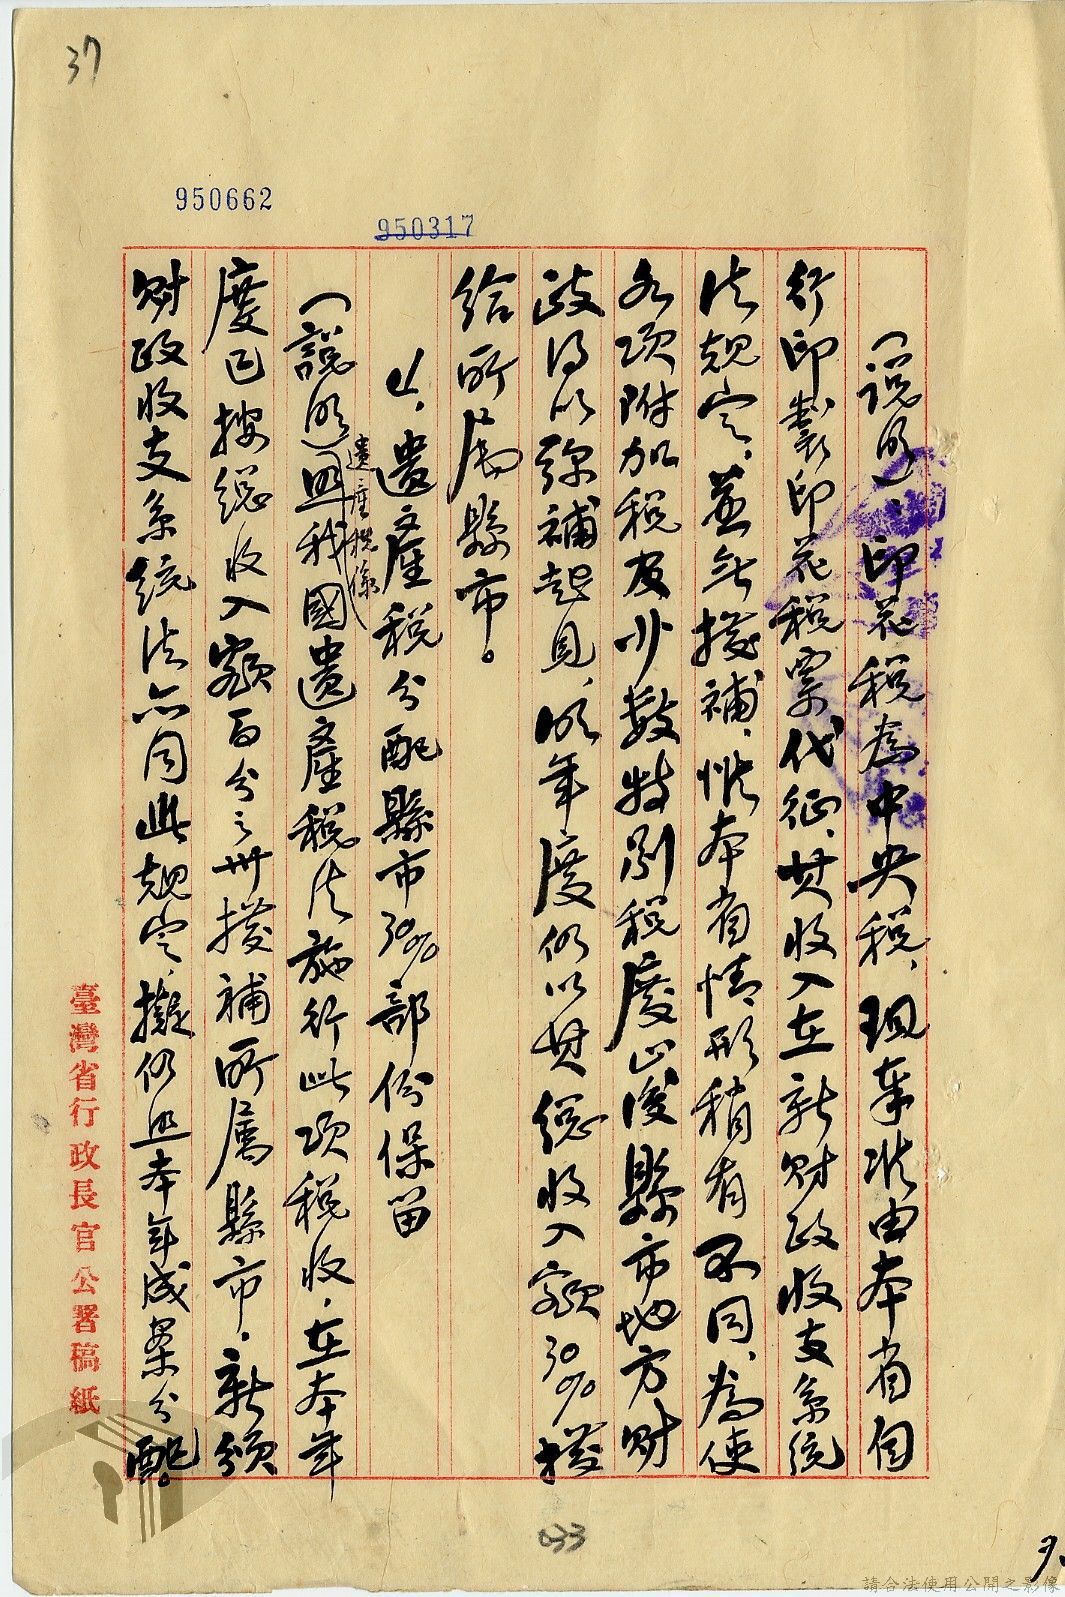 37
950662
950317
（說明）、印花稅為中央稅，現奉准由本省自
行印製印花稅票代征，其收入在新財政收支系統
法規定，並無撥補，惟本省情形稍有不同，為使
各項附加稅及少數特別稅廢止後縣市地方財
政得以弥補起見，明年度仍以其總收入額30%撥
給所屬縣市。
乙，遺產稅分配縣市30%部份保留
（說明）照我國遺產稅法施行此項稅收，在本年
遺產稅係
度已按總收入額百分之卅撥補所屬縣市，新頒
財政收支系統法亦同此規定，擬仍照本年成案分配。
臺灣省行政長官公署稿紙
33
請合法使用公開之影像